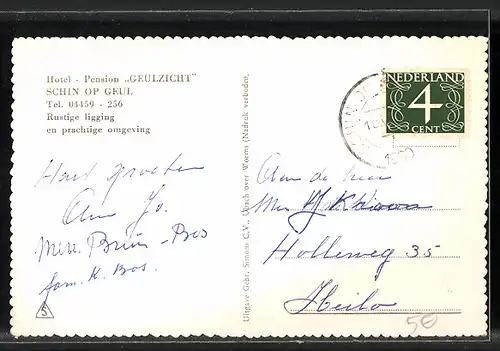 Hotel - Pension „GEULZICHT"
SCHIN OP GEUL
Tel. 04459 - 256
Rustige ligging
en prachtige omgeving
Hart. groeten
Mevr. Bruin - Bos
fam. K. Bos.
S
Uitgave Gebr. Simons C.V., Ubach over Worms (Nadruk verboden)
NEDERLAND
4
CENT
Aan de heer
Holleweg 35
Heilo
50